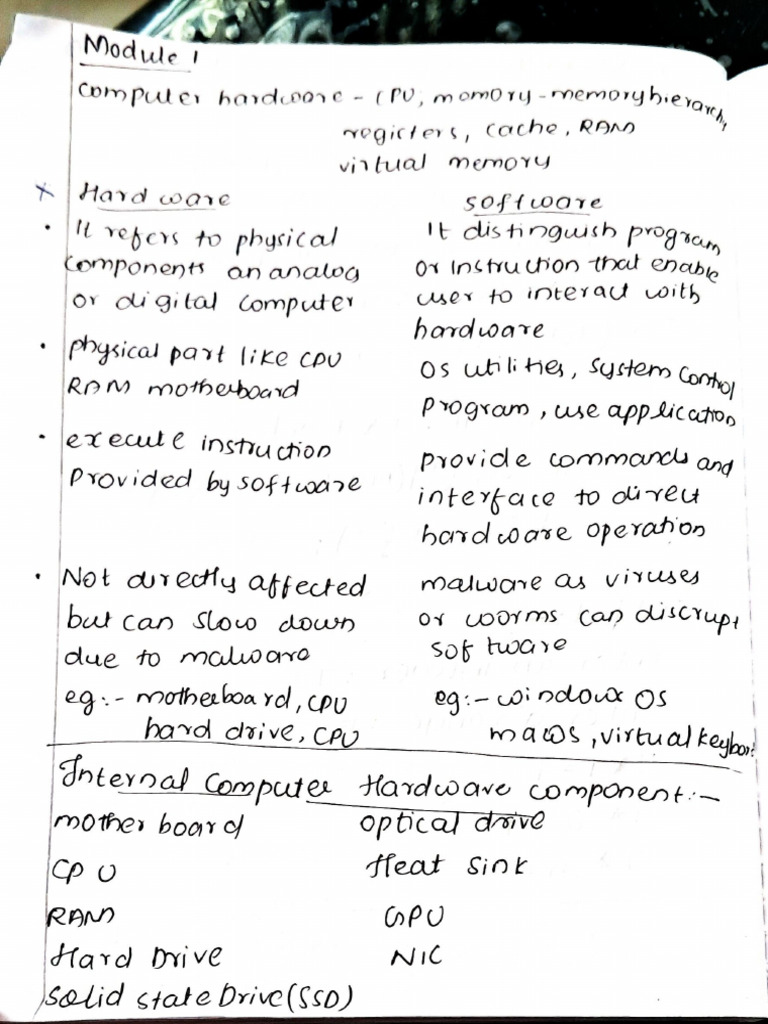 Module 1
Computer hardware - CPU, memory - memory hierarchy
registers, cache, RAM
virtual memory
x Hardware
• It refers to physical
components an analog
or digital computer
• physical part like CPU
RAM motherboard
• execute instruction
Provided by software
• Not directly affected
but can slow down
due to malware
eg:- motherboard, CPU
hard drive, CPU
software
It distinguish program
or instruction that enable
user to interact with
hardware
OS utilities, System Control
Program, use application
provide commands and
interface to direct
hardware operation
malware as viruses
or worms can discrupt
software
eg:- windows OS
macOS, virtual keyboard
Internal Computer Hardware component:-
mother board
CPU
RAM
Hard Drive
Solid state Drive (SSD)
optical drive
Heat sink
GPU
NIC